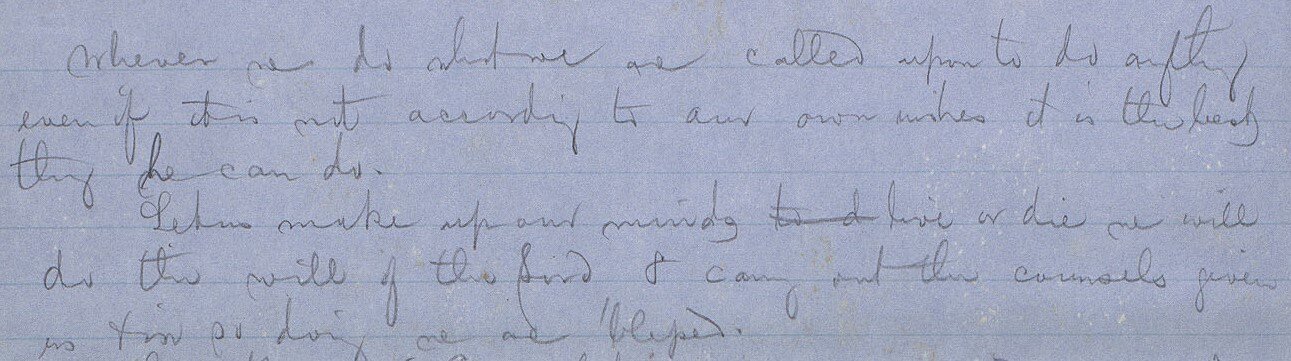 Whenever we do what we are called upon to do anything
even if it is not according to our own wishes it is the best
thing he can do.
Let us make up our minds to d live or die we will
do the will of the Lord & carry out the counsels given
us & in so doing we are blessed.